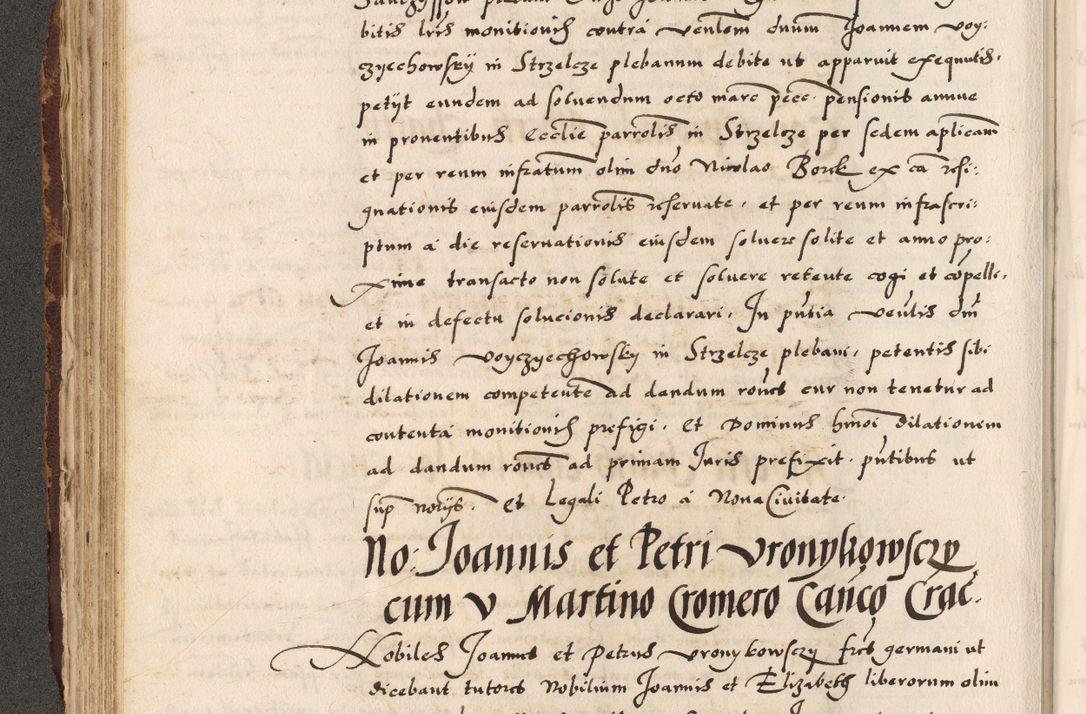 bitis lris monitionis contra venlem dnum Joannem voy:
czyechowsky in Strzelcze plebanum debite ut apparuit exequutis.
petyt eundem ad solvendum octo marc pecc. pensionis annue
in proventibus Ecclie parrolis in Strzelcze per sedem aplicam
et per reum infratum olim dno Nicolao Borek ex ca resi:
gnationis eiusdem parrolis reservate, et per reum infrascri:
ptum a die reservationis eiusdem solvere solite et anno pro:
xime transacto non solute et solvere retente cogi et compelli.
et in defectu solucionis declarari. In pntia venlis dni
Joannis voyczyechowsky in Strzelcze plebani, petentis sibi
dilationem competente ad dandum roncs cur non tenetur ad
contenta monitionis prefigi. Et Dominus hmoi dilationem
ad dandum roncs ad primam Juris prefixit. pntibus ut
sup notys. Et Legali Petro a Nova Civitate.
No: Joannis et Petri vronykowsczy
cum v Martino Cromero Canco Crac.
Nobiles Joannes et Petrus vronykowsczy frcs germani ut
dicebant tutores Nobilium Joannis et Elizabeth liberorum olim